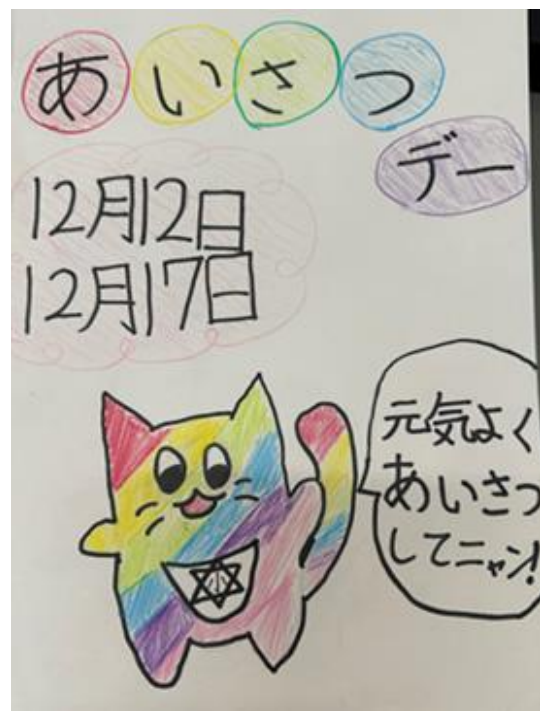 あいさつ
デー
12月12日
12月17日
元気よく
あいさつ
してニャン!
小